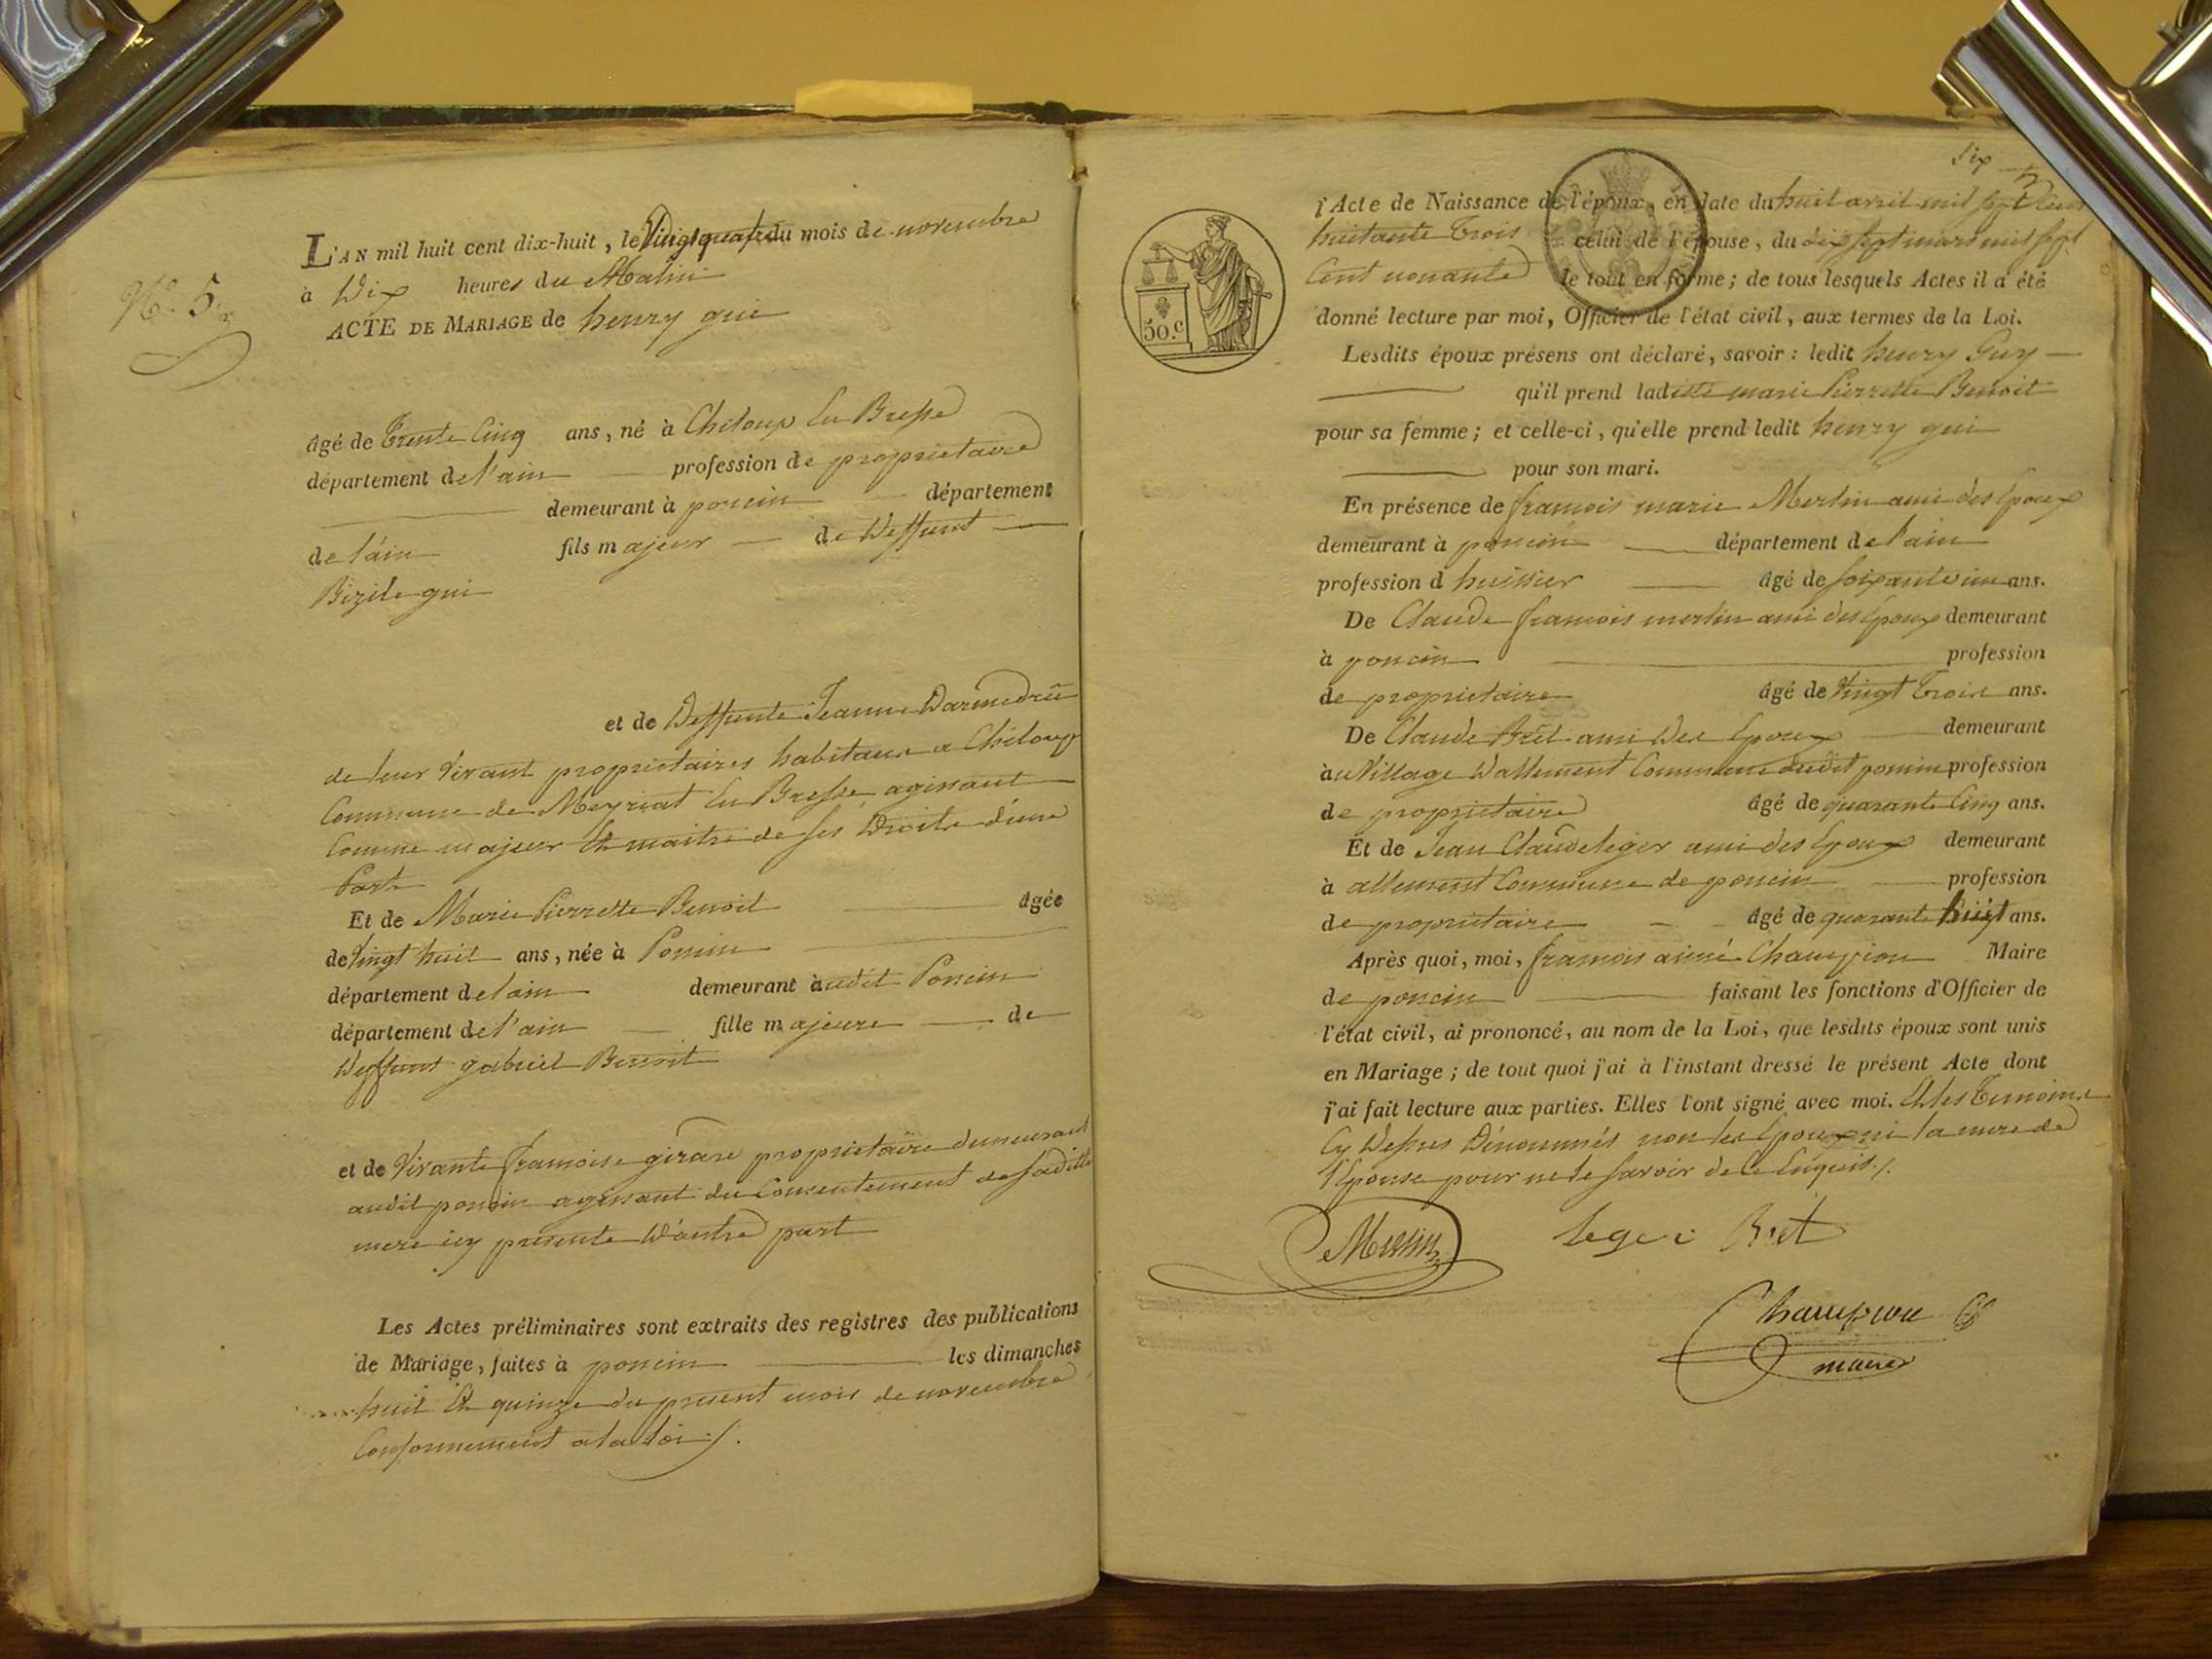 N.o 5
L'AN mil huit cent dix-huit, le Vingt quatre du mois de novembre
à Dix heures du Matin
ACTE DE MARIAGE de henry gui
âgé de Trente Cinq ans, né à Chiloup En Bresse
département de l'ain profession de proprietaire
demeurant à poncin département
de l'ain fils majeur de Deffunt
Bizile gui
et de Deffunte Jeanne Darmedru
de leur Vivant proprietaires habitans a Chiloup
Commune de Meyriat En Bresse agissant
Comme majeur Et maitre de ses Droits d'une
Part
Et de Marie Pierrette Benoit âgée
de Vingt huit ans, née à Poncin
département de l'ain demeurant audit Poncin
département de l'ain fille majeure de
Deffunt gabriel Benoit
et de Vivante francoise girard proprietaire demeurant
audit poncin agissant du Consentement de sadite
mere icy presente D'autre part
Les Actes préliminaires sont extraits des registres des publications
de Mariage, faites à poncin les dimanches
huit Et quinze du present mois de novembre
Conformement a la loi ./.
Six
l'Acte de Naissance de l'époux, en date du huit avril mil sept Cent
huitante Trois celui de l'épouse, du dix sept mars mil sept
Cent nonante le tout en forme; de tous lesquels Actes il a été
50.c
donné lecture par moi, Officier de l'état civil, aux termes de la Loi.
Lesdits époux présens ont déclaré, savoir: ledit henry Guy
qu'il prend laditte marie Pierrette Benoit
pour sa femme; et celle-ci, qu'elle prend ledit henry gui
pour son mari.
En présence de francois marie Merlin ami des Epoux
demeurant à poncin département de l'ain
profession d huissier âgé de soixante un ans.
De Claude francois merlin ami des Epoux demeurant
à poncin profession
de proprietaire âgé de Vingt Trois ans.
De Claude Bret ami Des Epoux demeurant
au Village D'allement Commune dudit poncin profession
de proprietaire âgé de quarante Cinq ans.
Et de Jean Claude leger ami des Epoux demeurant
à allement Commune de poncin profession
de proprietaire âgé de quarante huit ans.
Après quoi, moi, francois aimé Champion Maire
de poncin faisant les fonctions d'Officier de
l'état civil, ai prononcé, au nom de la Loi, que lesdits époux sont unis
en Mariage; de tout quoi j'ai à l'instant dressé le présent Acte dont
j'ai fait lecture aux parties. Elles l'ont signé avec moi. Et les Temoins
Cy Dessus Dénommés non les Epoux ni la mere de
l'Epouse pour ne le savoir de ce Enquis ./.
Merlin leger Bret
Champion
maire